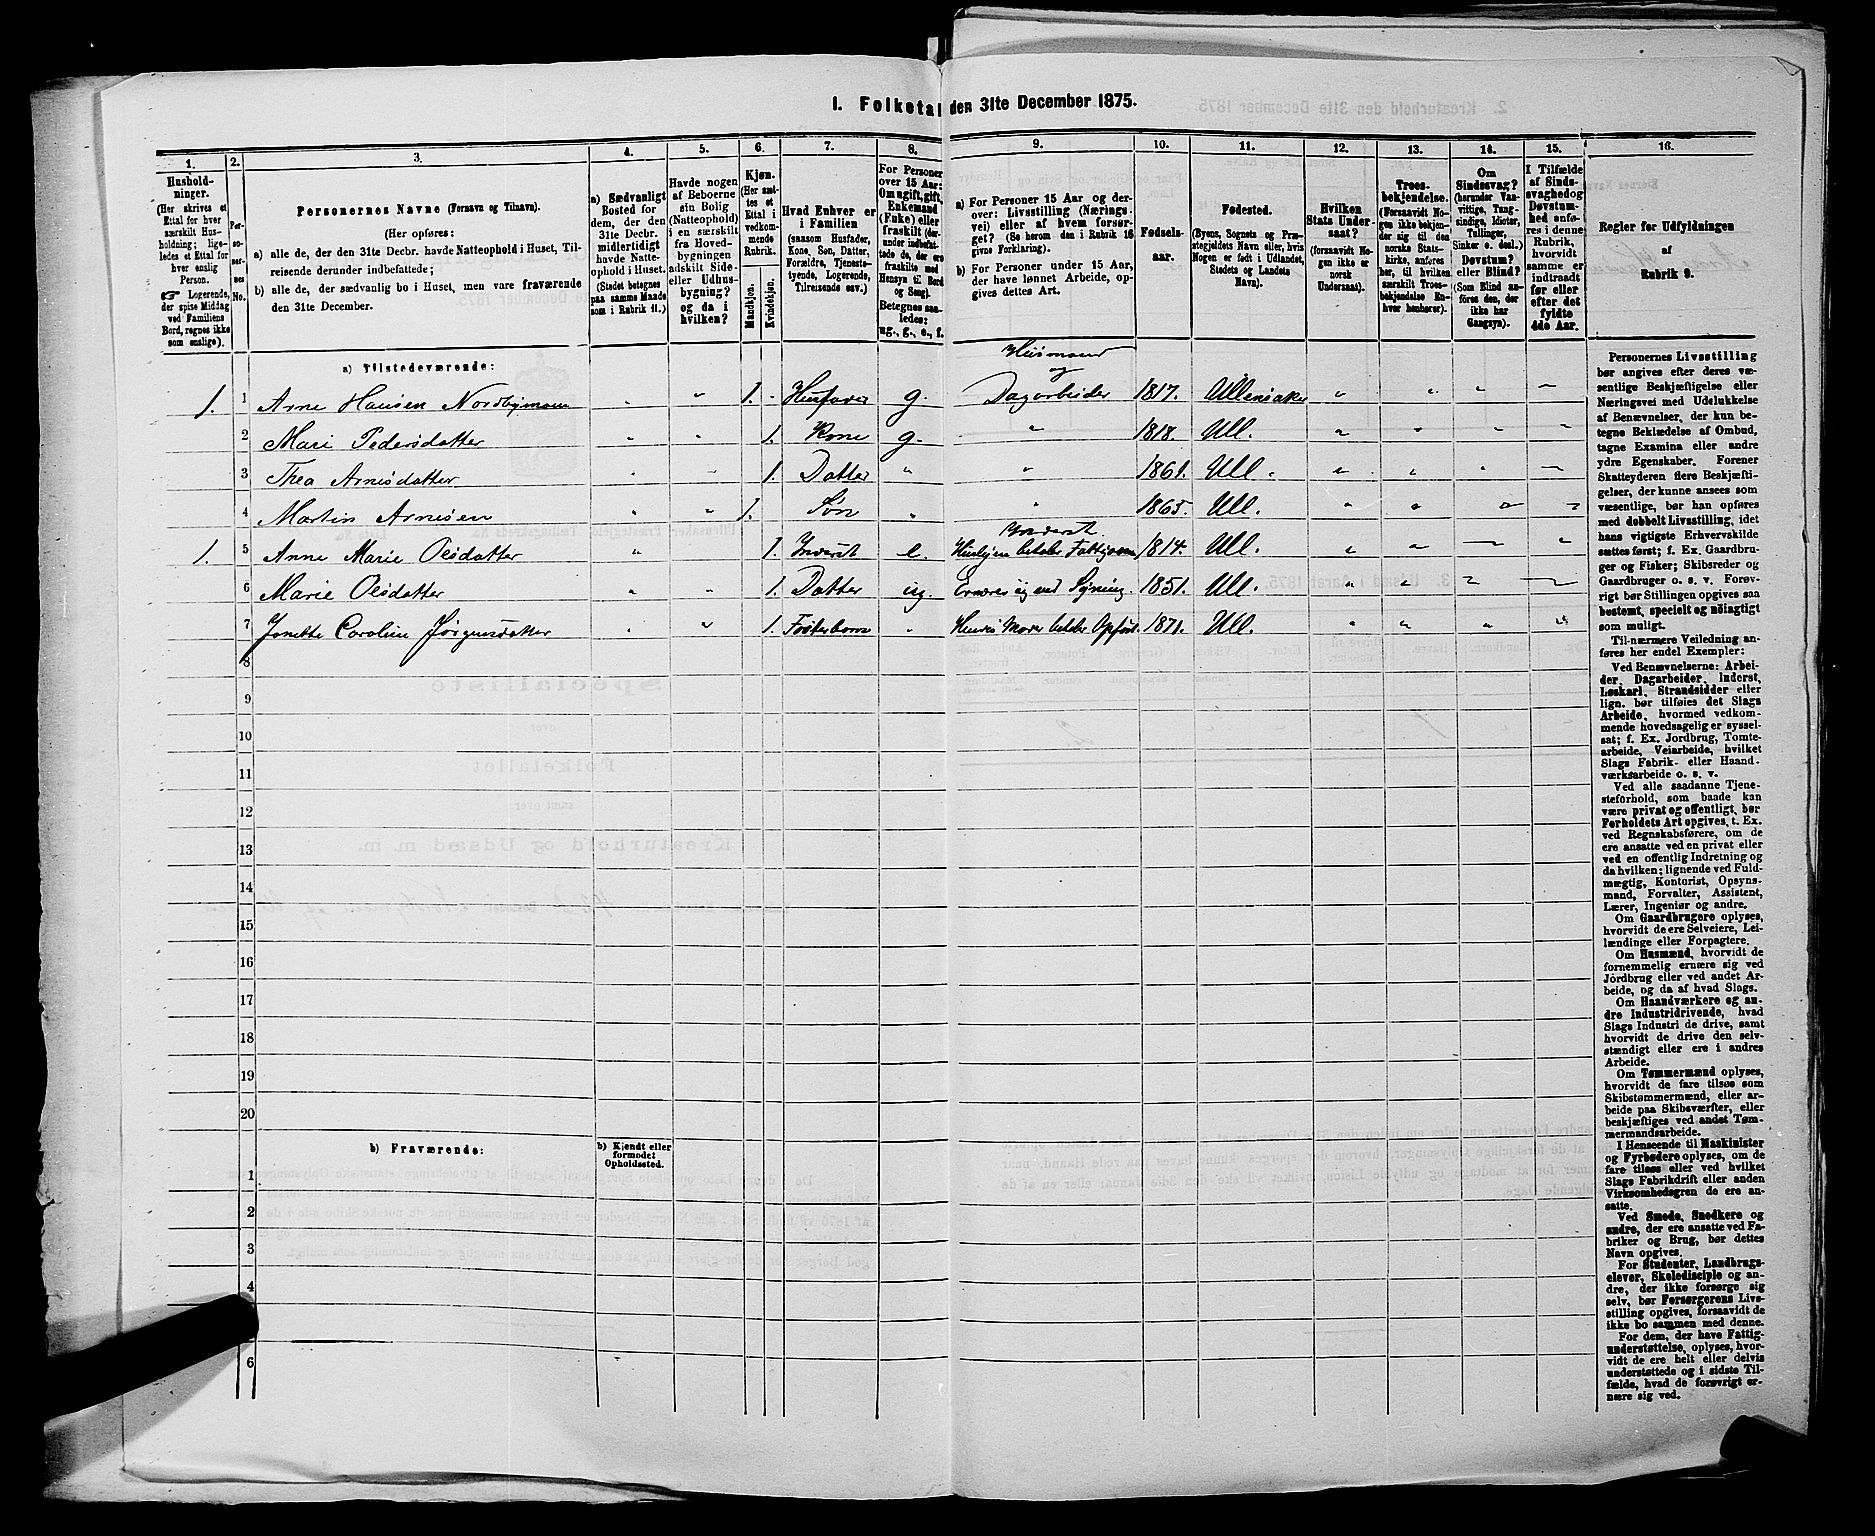 1. Folketal den 31te December 1875.
1.
2.
3.
4.
5.
6.
7.
8.
9.
10.
11.
12.
13.
14.
15.
16.
Husholdninger.
(Her skrives et
Ettal for hver
særskilt Husholdning;
ligeledes et Ettal for
hver enslig
Person.
☞ Logerende,
der spise Middag
ved Familiens
Bord, regnes ikke
som enslige).
Personernes No.
Personernes Navne (Fornavn og Tilnavn).
(Her opføres:
a) alle de, der den 31te Decbr. havde Natteophold i Huset, Tilreisende derunder indbefattede;
b) alle de, der sædvanlig bo i Huset, men vare fraværende
den 31te December.
a) Sædvanligt
Bosted for
dem, der den
31te Decbr.
midlertidigt
havde Natteophold i Huset.
(Stedet betegnes
paa samme Maade
som i Rubrik 11.)
Havde nogen
af Beboerne
sin Bolig
(Natteophold)
i en særskilt
fra Hovedbygningen
adskilt Side-
eller Udhusbygning?
og da i
hvilken?
Kjøn.
(Her sættes et
Ettal i
vedkommende
Rubrik.
Mandkjøn.
Kvindekjøn.
Hvad Enhver er
i Familien
(saasom Husfader,
Kone, Søn, Datter,
Forældre, Tjenestetyende, Logerende,
Tilreisende osv.)
For Personer
over 15 Aar:
Om ugift, gift,
Enkemand
(Enke) eller
fraskilt (derunder indbefattede de, der
ere fraskilte med
Hensyn til Bord
og Seng).
Betegnes saaledes:
ug., g., e., f.
a) For Personer 15 Aar og derover: Livsstilling (Næringsvei) eller af hvem forsørget? (Se herom den i Rubrik 16
givne Forklaring).
b) For Personer under 15 Aar,
der have lønnet Arbeide, opgives dettes Art.
Fødselsaar.
Fødested.
(Byens, Sognets og Præstegjeldets Navn eller, hvis
Nogen er født i Udlandet,
Stedets og Landets
Navn).
Hvilken
Stats Undersaat?
(forsaavidt Nogen ikke er
norsk
Undersaat).
Troesbekjendelse.
(Forsaavidt Nogen ikke bekjender sig til den
norske Statskirke, anføres
her, til hvilken
særskilt Troesbekjendelse Enhver henhører).
Om
Sindssvag?
(herunder Vanvittige, Tungsindige, Idioter,
Tullinger,
Sinker o. desl.)
Døvstum?
eller Blind?
(Som Blind anføres den, der
ikke har
Gangsyn).
I Tilfælde
af Sindssvaghed og
Døvstumhed anføres i denne
Rubrik,
hvorvidt
samme er
indtraadt
før eller
efter det
fyldte
4de Aar.
Regler for Udfyldningen
af
Rubrik 9.
a) Tilstedeværende:
Husmand
og
1. 1 Arne Hansen Nordbymoen " " 1. - Husfader g. Dagarbeider 1817. Ullensaker " " " "
2 Mari Pedersdatter " " 1. Kone g. " 1818. Ull. " " " "
3 Thea Arnesdatter " " 1. Datter " " 1861. Ull. " " " "
4 Martin Arnesen " " 1. Søn " " 1865. Ull. " " " "
Inderst.
1. 5 Anne Marie Olsdatter " 1. Inderst e. Huslejen betales Fattigvæs. 1814. Ull. " " " "
6 Marie Olsdatter " " 1. Datter ug. Ernærer sig ved Syning. 1851. Ull. " " " "
7 Janette Caroline Jørgensdatter " " 1. Fosterbarn " Hendes Moder betaler Opfost. 1871. Ull. " " " "
8
9
10
11
12
13
14
15
16
17
18
19
20
b) Fraværende:
b) Kjendt eller
formodet
Opholdssted.
1
2
3
4
6
Personernes Livsstilling
bør angives efter deres væsentlige Beskjæftigelse eller
Næringsvei med Udelukkelse
af Benævnelser, der kun betegne Beklædelse af Ombud,
tagne Examina eller andre
ydre Egenskaber. Forener
Skatteyderen flere Beskjæftigelser, der kunne ansees som
væsentlige, bør han opføres
med dobbelt Livsstilling, idet
hans vigtigste Erhvervskilde
sættes først; f. Ex. Gaardbruger og Fisker; Skibsreder og
Gaardbruger o. s. v. Forøvrigt bør Stillingen opgives saa
bestemt, specielt og nøiagtigt
som muligt.
Til nærmere Veiledning anføres her endel Exempler:
Ved Benævnelserne: Arbeider, Dagarbeider, Inderst,
Løskarl, Strandsidder eller
lign. bør tilføies det Slags
Arbeide, hvormed vedkommende hovedsagelig er sysselsat; f. Ex. Jordbrug, Tomtearbeide, Veiarbeide, hvilket
Slags Fabrik- eller Haandværksarbeide o. s. v.
Ved alle saadanne Tjenesteforhold, som baade kan
være privat og offentligt, bør
Forholdets Art opgives, t. Ex.
ved Regnskabsførere, om de
ere ansatte ved en privat eller
ved en offentlig Indretning og
da hvilken; lignende ved Fuldmægtig, Kontorist, Opsynsmand, Forvalter, Assistent,
Lærer, Ingeniør og andre.
Om Gaardbrugere oplyses,
hvorvidt de ere Selveiere, Leilændinge eller Forpagtere.
Om Husmænd, hvorvidt de
fornemmelig ernære sig ved
Jordbrug eller ved andet Arbeide, og da af hvad Slags.
Om Haandværkere og andre Industridrivende, hvad
Slags Industri de drive, samt
hvorvidt de drive den selvstændigt eller ere i andres
Arbeide.
Om Tømmermænd oplyses,
hvorvidt de fare tilsøs som
Skibstømmermænd, eller arbeide paa Skibsværfter, eller
beskjæftiges ved andet Tømmermandsarbeide.
I Henseende til Maskinister
og Fyrbødere oplyses, om de
fare tilsøs eller ved hvilket
Slags Fabrikdrift eller anden
Virksomhedsgren de ere ansatte.
Ved Smede, Snedkere og
andre, der ere ansatte ved Fabriker og Brug, bør dettes
Navn opgives.
For Studenter, Landbrugselever, Skoledisciple og andre, der ikke forsørge sig
selv, bør Forsørgerens Livsstilling opgives, forsaavidt de
ikke bo sammen med denne.
For dem, der have Fattigunderstøttelse, oplyses, hvorvidt de ere helt eller delvis
understøttede og i sidste Tilfælde, hvad de forøvrigt ernære sig ved.